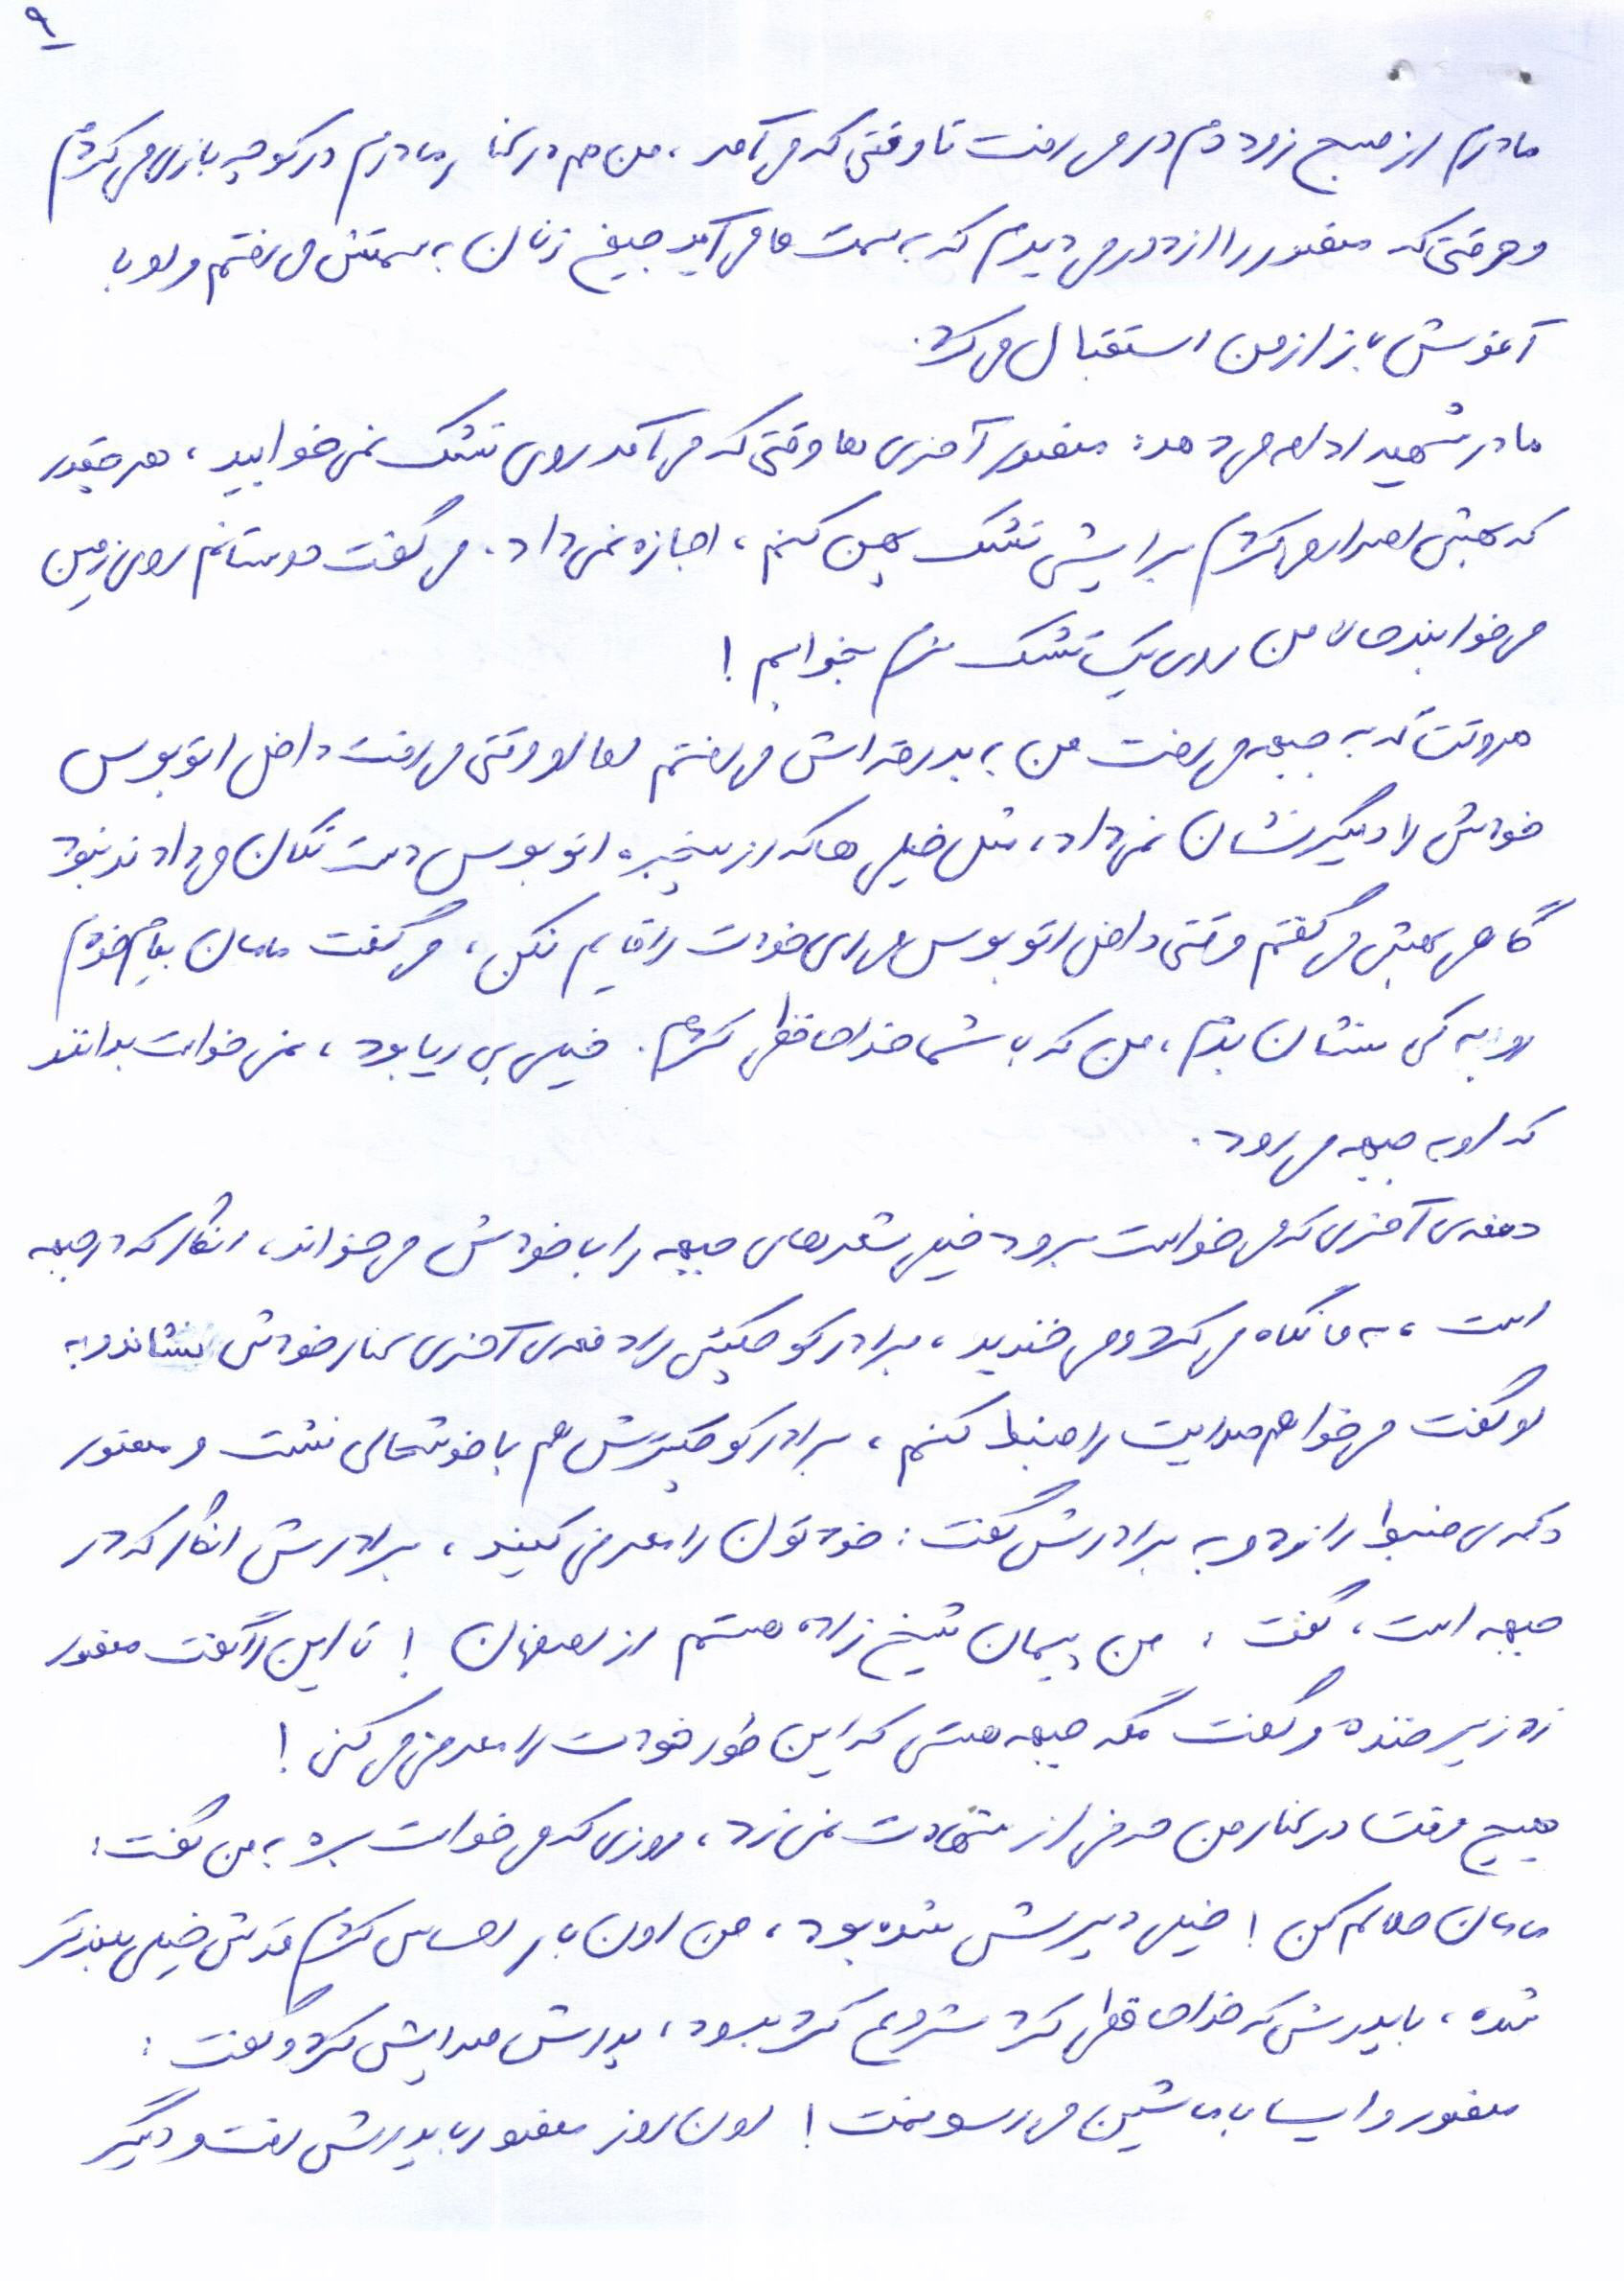 ۹
مادرم از صبح زود دم در می رفت تا وقتی که می آمد ، من هم در کنار مادرم در کوچه بازی می کردم
و هر وقتی که منصور را از دور می دیدم که به سمت ما می آید جیغ زنان به سمتش می رفتم و او با
آغوش باز از من استقبال می کرد.
مادر شهید ادامه می دهد: منصور آخری ها وقتی که می آمد روی تشک نمی خوابید ، هر چقدر
که بهش اصرار می کردم برایش تشک پهن کنم ، اجازه نمی داد. می گفت دوستانم روی زمین
می خوابند حالا من روی یک تشک نرم بخوابم !
هر وقت که به جبهه می رفت من به بدرقه اش می رفتم اما او وقتی می رفت داخل اتوبوس
خودش را دیگر نشان نمی داد ، مثل خیلی ها که از پنجره اتوبوس دست تکان می دادند نبود
گاهی بهش می گفتم وقتی داخل اتوبوس می ری خودت را قایم نکن ، می گفت مامان بیام خودم
رو به کی نشان بدم ، من که با شما خداحافظی کردم. خیلی بی ریا بود ، نمی خواست بدانند
که او به جبهه می رود.
دفعه ی آخری که می خواست برود خیلی شعرهای جبهه را با خودش می خواند ، انگار که در جبهه
است ، به ما نگاه می کرد و می خندید ، برادر کوچیکش را دفعه ی آخری کنار خودش نشاند و به
او گفت می خواهم صدایت را ضبط کنم ، برادر کوچیکترش هم با خوشحالی نشست و منصور
دکمه ی ضبط را زد و به برادرش گفت : خودتون را معرفی کنید ، برادرش انگار که در
جبهه است ، گفت : من پیمان شیخ زاده هستم از اصفهان ! تا این را گفت منصور
زد زیر خنده و گفت مگه جبهه هستی که این طور خودت را معرفی می کنی !
هیچ وقت در کنار من حرفی از شهادت نمی زد ، روزی که می خواست بره به من گفت :
مامان حلالم کن ! خیلی دیرش شده بود ، من اون بار احساس کردم قدش خیلی بلندتر
شده ، با پدرش که خداحافظی کرد شروع کرد بدود ، پدرش صدایش کرد و گفت :
منصور وایسا با ماشین می رسونمت ! اون روز منصور با پدرش رفت و دیگر